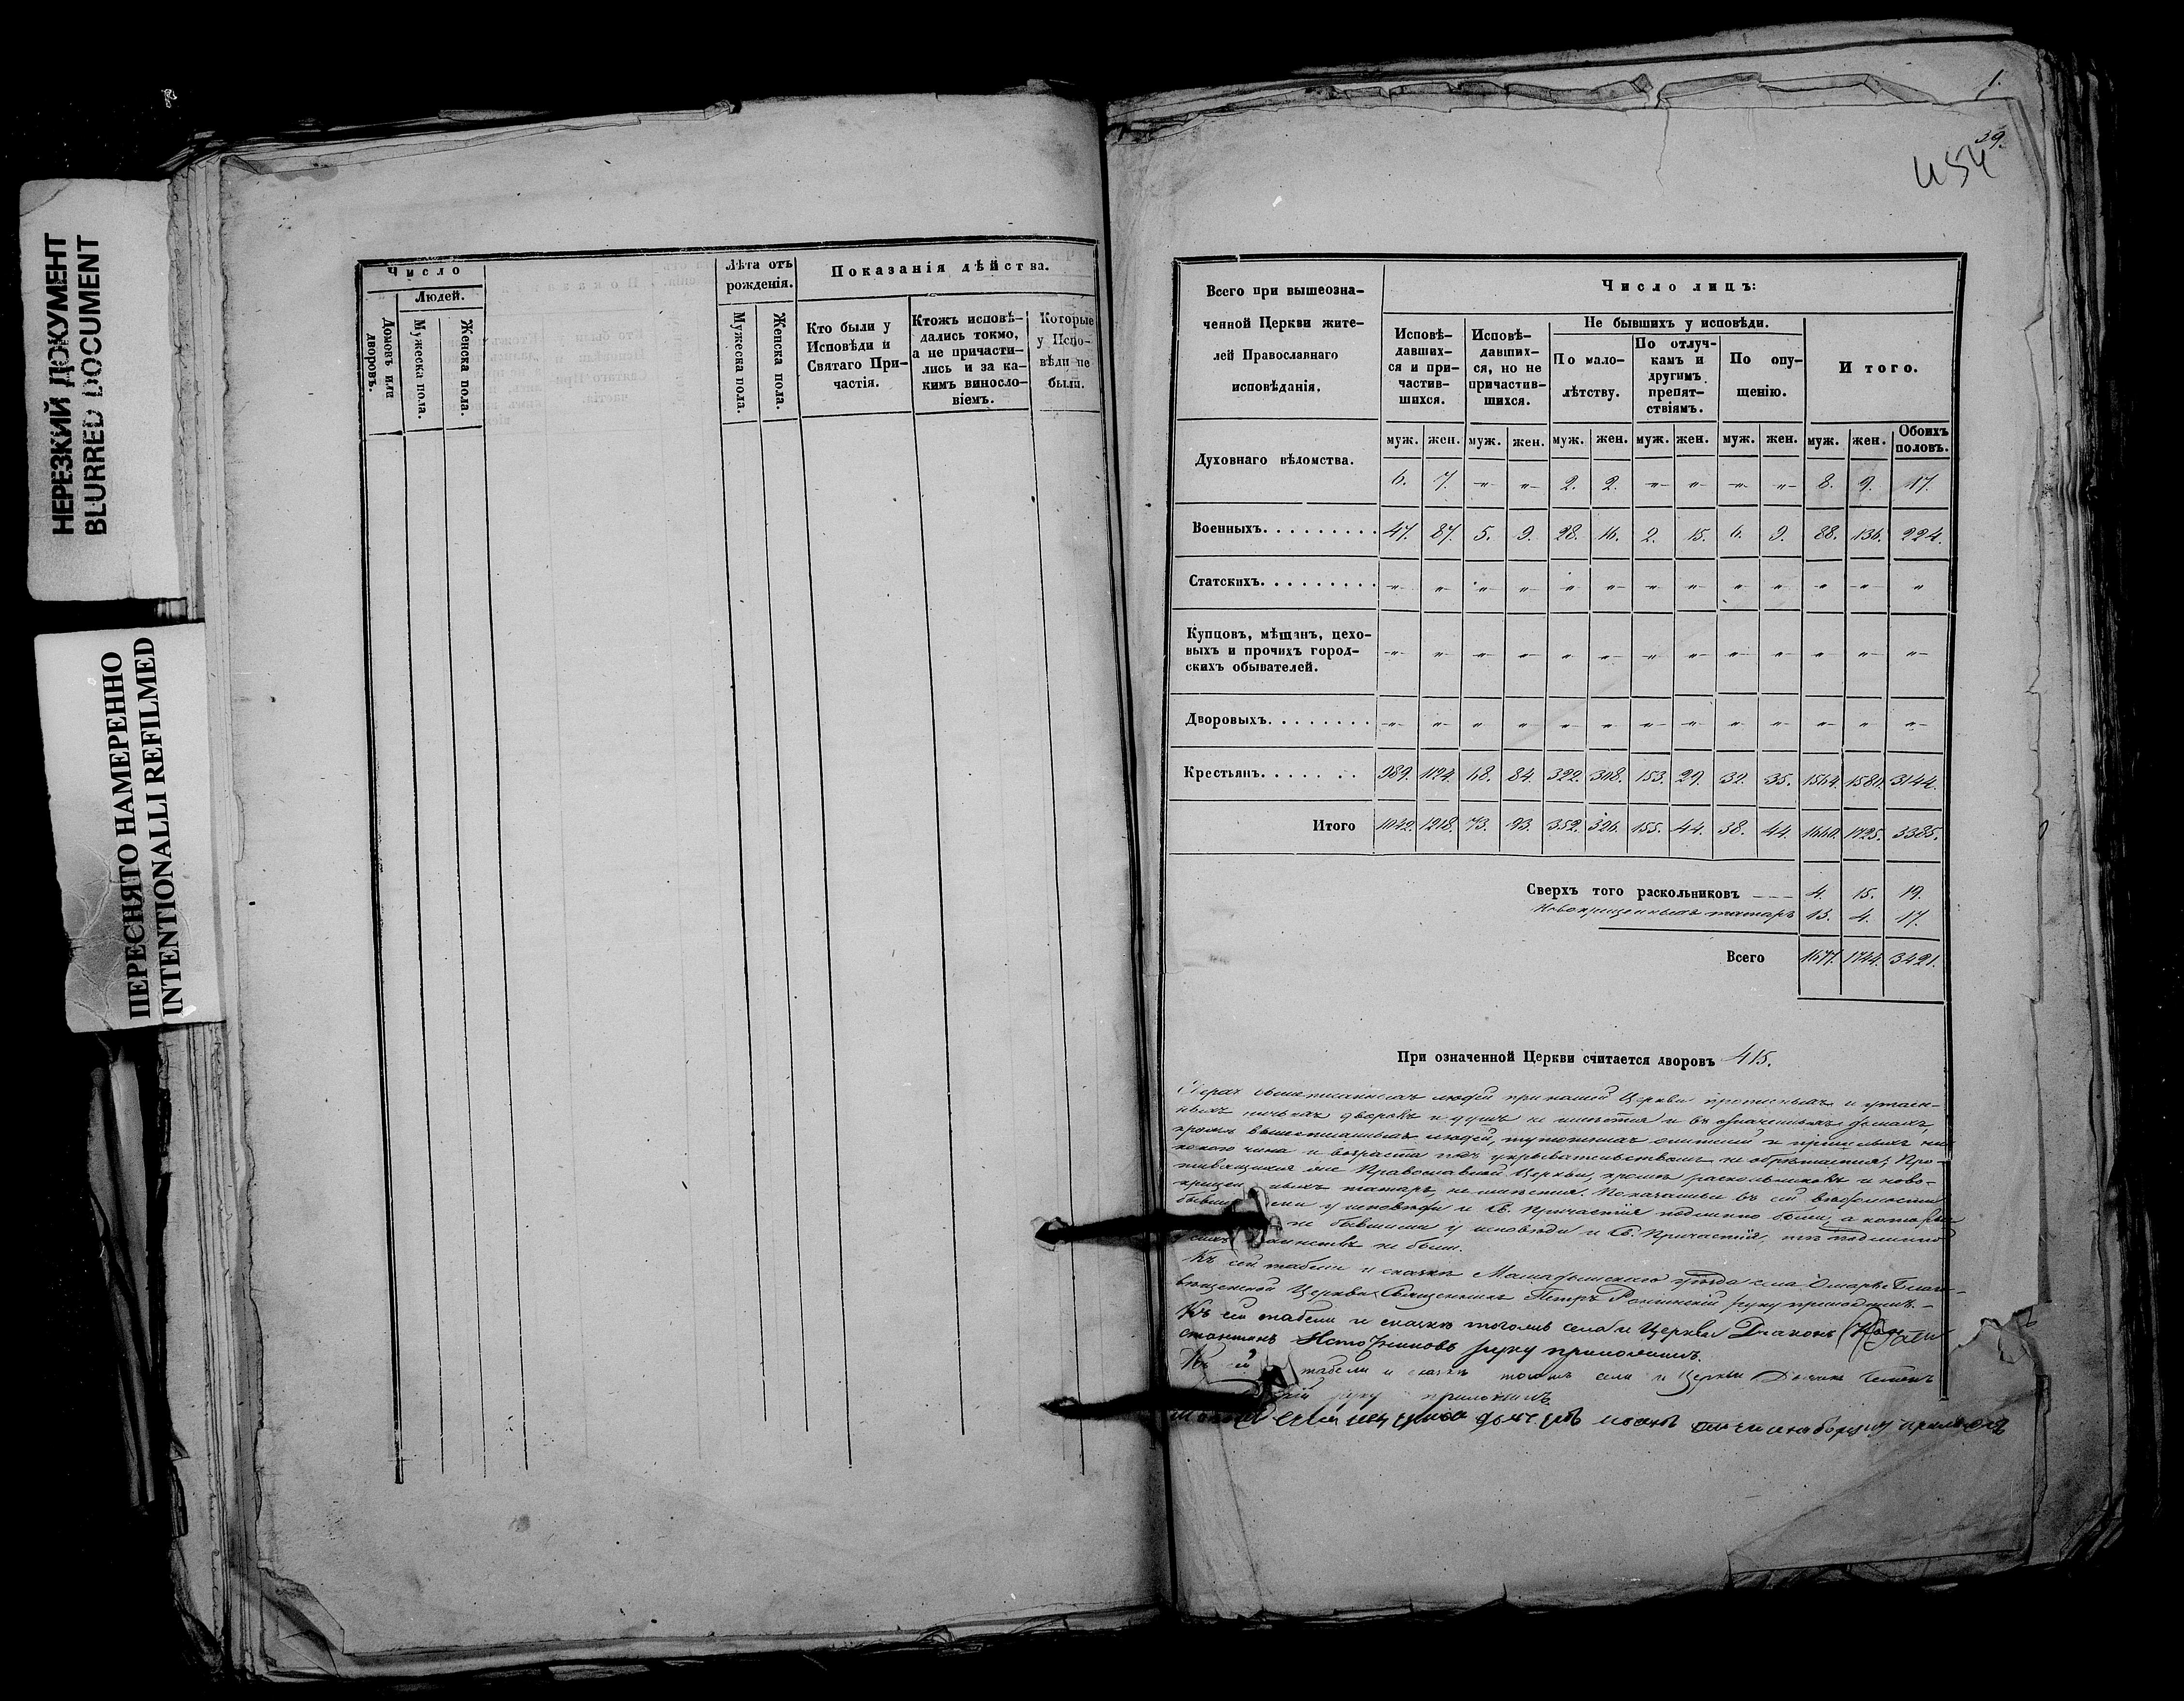 НЕРЕЗКИЙ ДОКУМЕНТ
BLURRED DOCUMENT
ПЕРЕСНЯТО НАМЕРЕННО
INTENTIONALLI REFILMED
Число
Людей.
Домовъ или дворовъ.
Мужеска пола.
Женска пола.
Лѣта отъ рожденія.
Мужеска пола.
Женска пола.
Показанія дѣйства.
Кто были у Исповѣди и Святаго Причастія.
Ктожъ исповѣдались токмо, а не причастились и за какимъ винословіемъ.
Которые у Исповѣди не были.
1.
39.
454
Всего при вышеозна-
ченной Церкви жите-
лей Православнаго
исповѣданія.
Число лицъ:
Исповѣ-
давших-
ся и при-
частив-
шихся.
Исповѣ-
давших-
ся, но не
причастив-
шихся.
Не бывшихъ у исповѣди.
По мало-
лѣтству.
По отлуч-
камъ и
другимъ
препят-
ствіямъ.
По опу-
щенію.
Итого.
муж. жен. муж. жен. муж. жен. муж. жен. муж. жен. муж. жен. Обоихъ половъ.
Духовнаго вѣдомства. 6. 7. -„- -„- 2. 2. -„- -„- -„- -„- 8. 9. 17.
Военныхъ. 47. 87. 5. 9. 28. 16. 2. 15. 6. 9. 88. 136. 224.
Статскихъ. -„- -„- -„- -„- -„- -„- -„- -„- -„- -„- -„- -„- „
Купцовъ, мѣщанъ, цехо-
выхъ и прочихъ город-
скихъ обывателей. -„- -„- -„- -„- -„- -„- -„- -„- -„- -„- -„- -„- -„-
Дворовыхъ. -„- -„- -„- -„- -„- -„- -„- -„- -„- -„- -„- -„- -„-
Крестьянъ. 989. 1124. 68. 84. 322. 308. 153. 29. 32. 35. 1564. 1580. 3144.
Итого 1042. 1218. 73. 93. 352. 326. 155. 44. 38. 44. 1660. 1725. 3385.
Сверхъ того раскольниковъ 4. 15. 19.
Новокрещенныхъ татаръ 13. 4. 17.
Всего 1677. 1744. 3421.
При означенной Церкви считается дворовъ 415.
вышеписанныхъ людей при нашей Церкви прописныхъ и утаен-
ныхъ дворовъ и душъ не имѣется и въ означенныхъ домахъ,
кромѣ вышеписанныхъ людей, и пришлыхъ
чина и возраста подъ укрывательствомъ не обрѣтается; Про-
Православной Церкви, кромѣ раскольниковъ и ново-
татаръ, не имѣется. Показанныи въ сей вѣдомости
у исповѣди и Св. Причастія подлинно были; а которые
не бывшими у исповѣди и Св. Причастія, подлинно
не были.
Къ сей табели и сказкѣ Мамадышскаго уѣзда села Омаръ Благо-
вѣщенской Церкви Священникъ Петръ руку приложилъ.
Къ сей табели и сказкѣ тогожъ села и Церкви Діаконъ
Источниковъ руку приложилъ.
табели и сказкѣ села и Церкви Дьячекъ Семенъ
руку приложилъ.